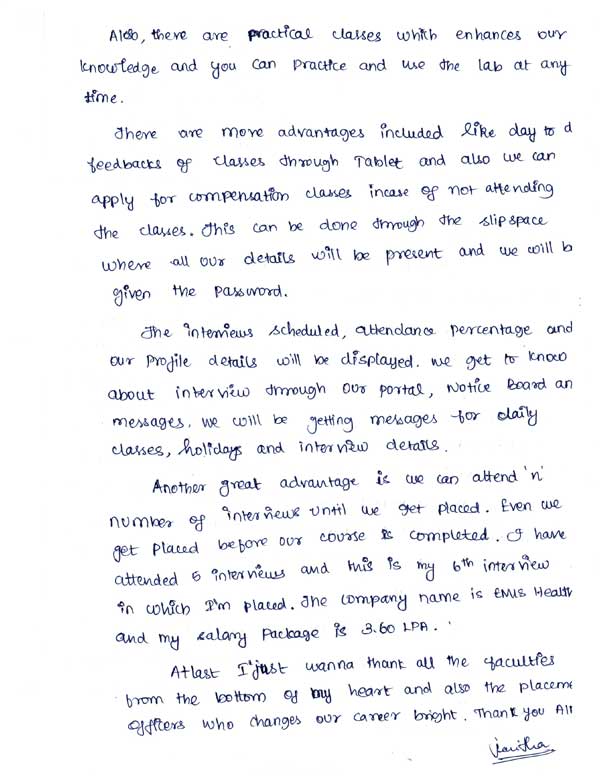 Also, there are practical classes which enhances our
knowledge and you can practice and use the lab at any
time.
There are more advantages included like day to d
feedbacks of classes through Tablet and also we can
apply for compensation classes incase of not attending
the classes. This can be done through the slipspace
where all our details will be present and we will b
given the password.
The interviews scheduled, attendance percentage and
our profile details will be displayed. we get to know
about interview through our portal, Notice Board an
messages. we will be getting messages for daily
classes, holidays and interview details.
Another great advantage is we can attend 'n'
number of interviews until we get placed. Even we
get placed before our course is completed. I have
attended 5 interviews and this is my 6th interview
in which I'm placed. The company name is EMIS Health
and my salary package is 3.60 LPA.
Atlast I just wanna thank all the faculties
from the bottom of my heart and also the placeme
officers who changes our career bright. Thank you All